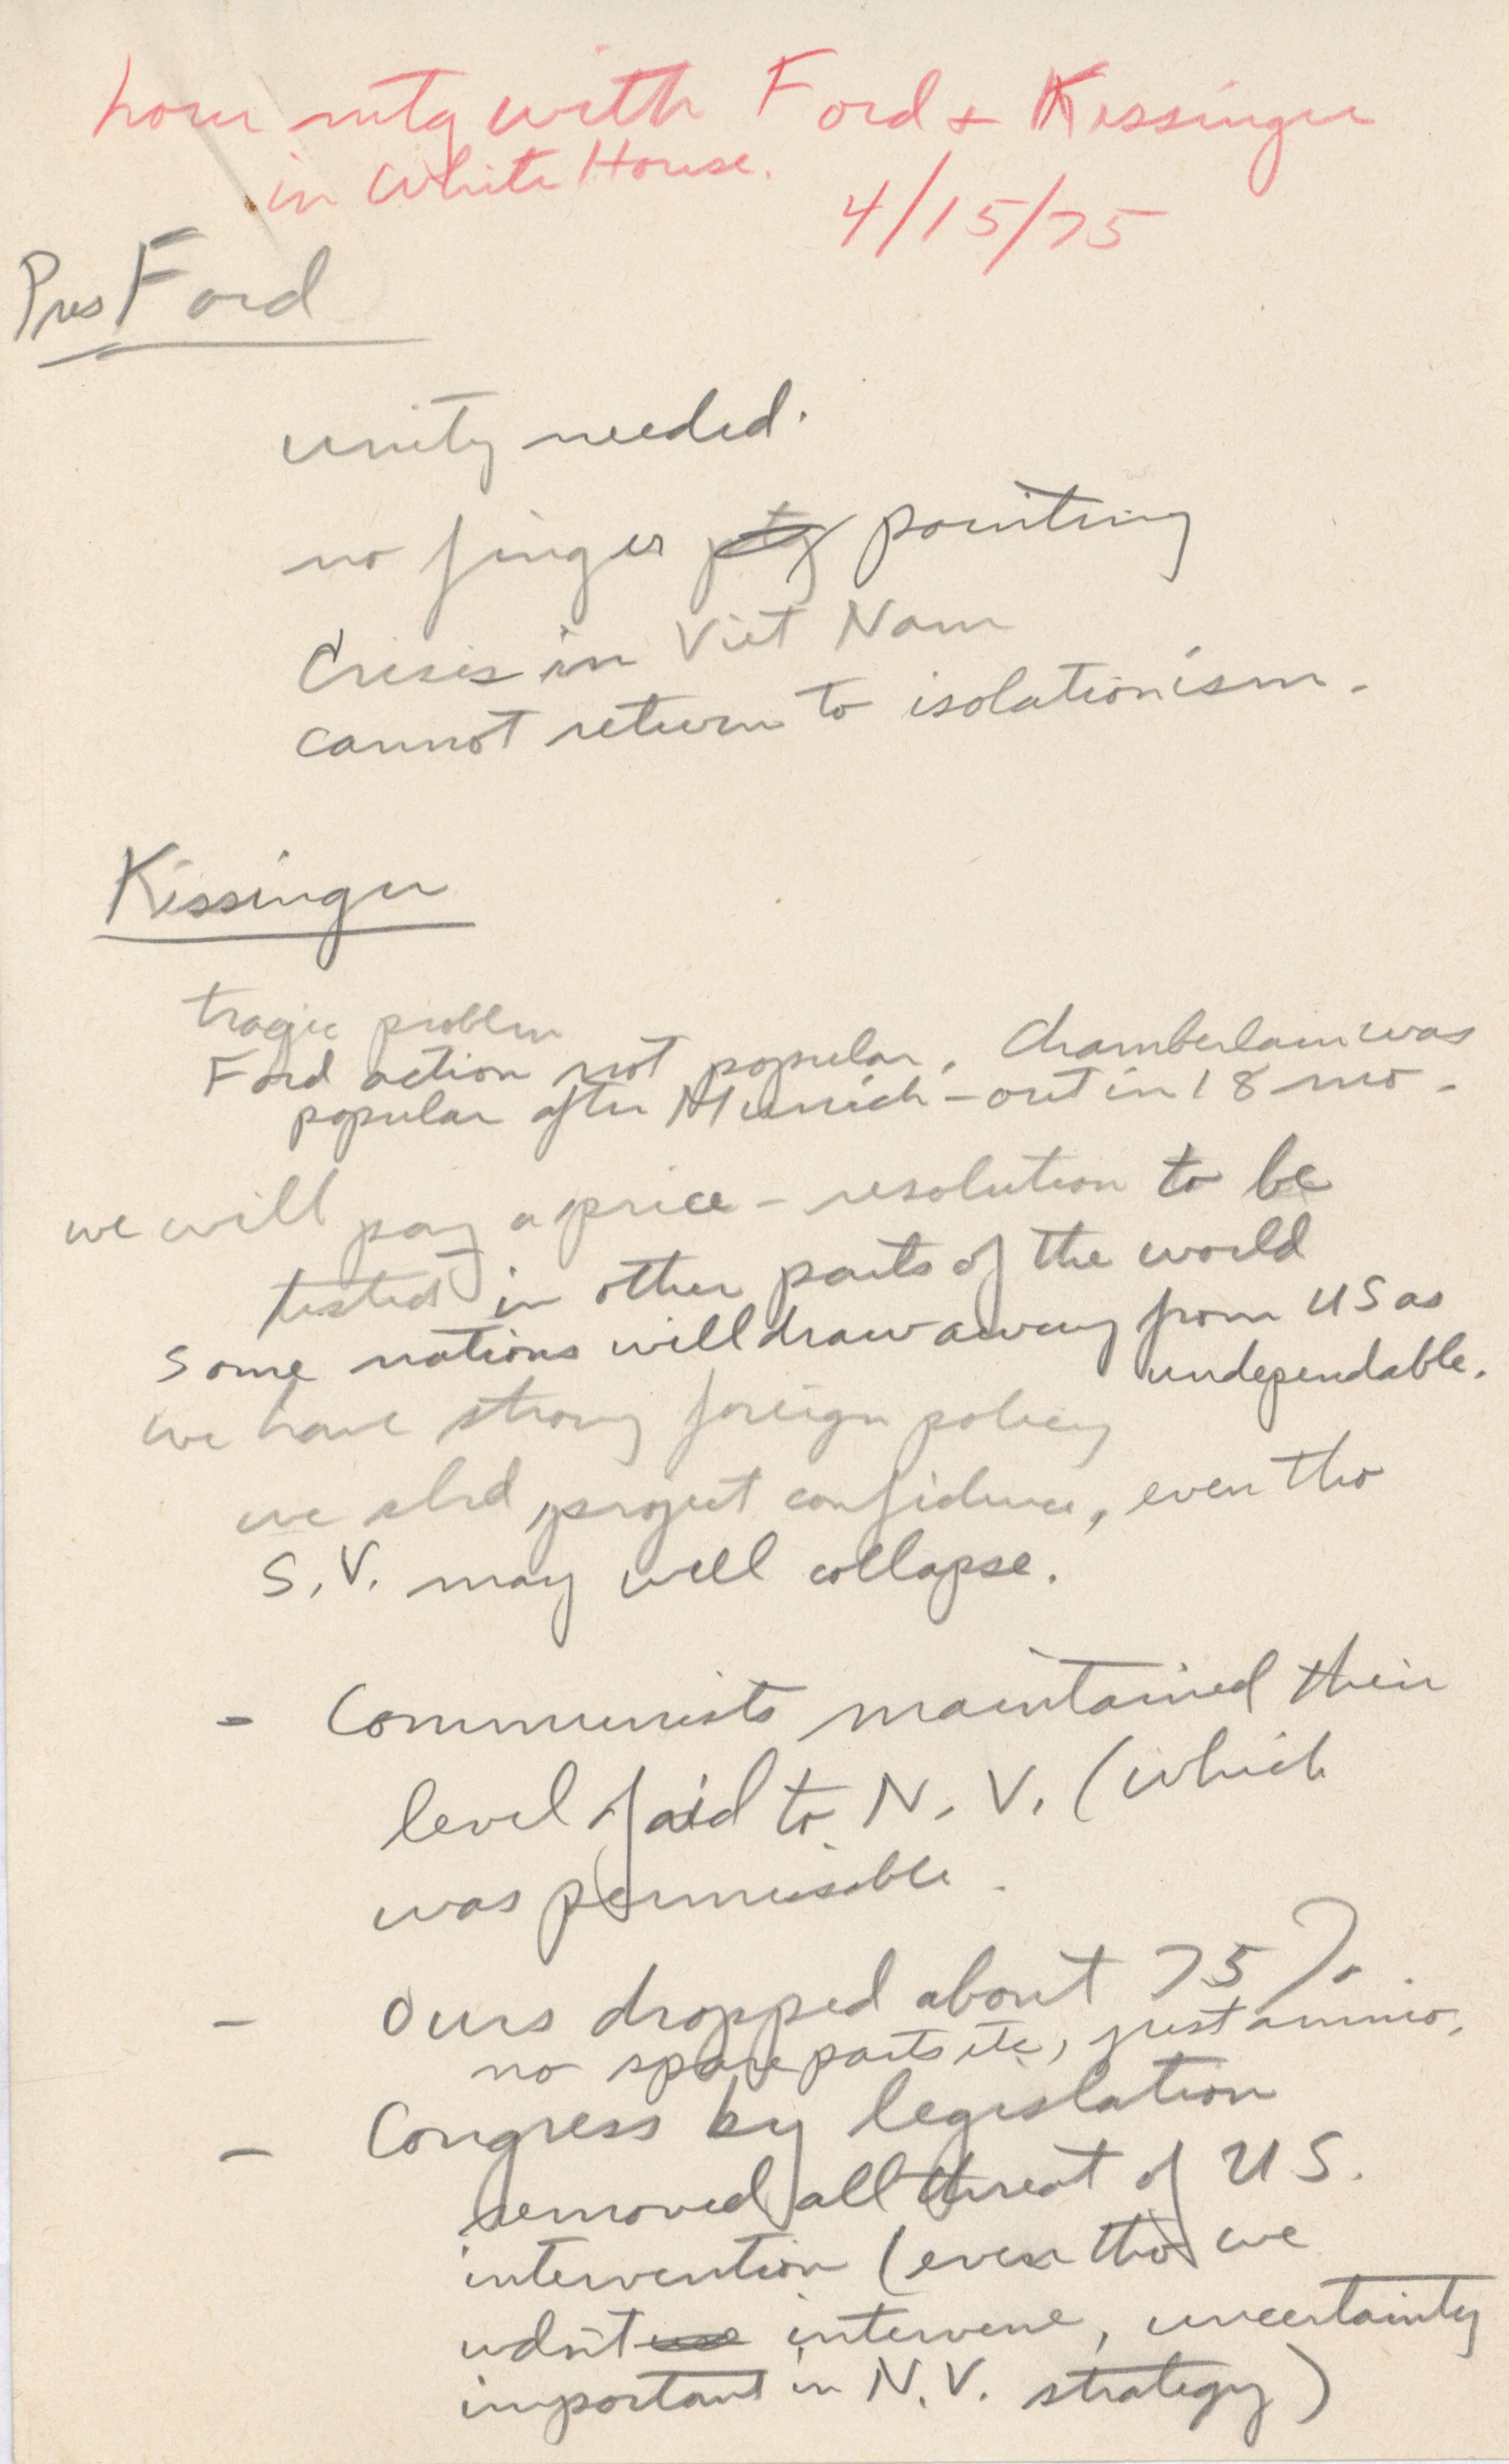 hour mtg with Ford + Kissinger
in White House.
4/15/75
Pres Ford
unity needed.
no finger ptg pointing
Crisis in Viet Nam
cannot return to isolationism.
Kissinger
tragic problem
Ford action not popular. Chamberlain was
popular after Munich - out in 18 mo.
we will pay a price - resolution to be
tested in other parts of the world
some nations will draw away from US as
undependable.
we have strong foreign policy
we shd project confidence, even tho
S.V. may well collapse.
- Communists maintained their
level of aid to N.V. (which
was permissible.
- Ours dropped about 75%.
no spare parts etc, just ammo.
- Congress by legislation
removed all threat of US.
intervention (even tho we
wdnt intervene, uncertainty
important in N.V. strategy)